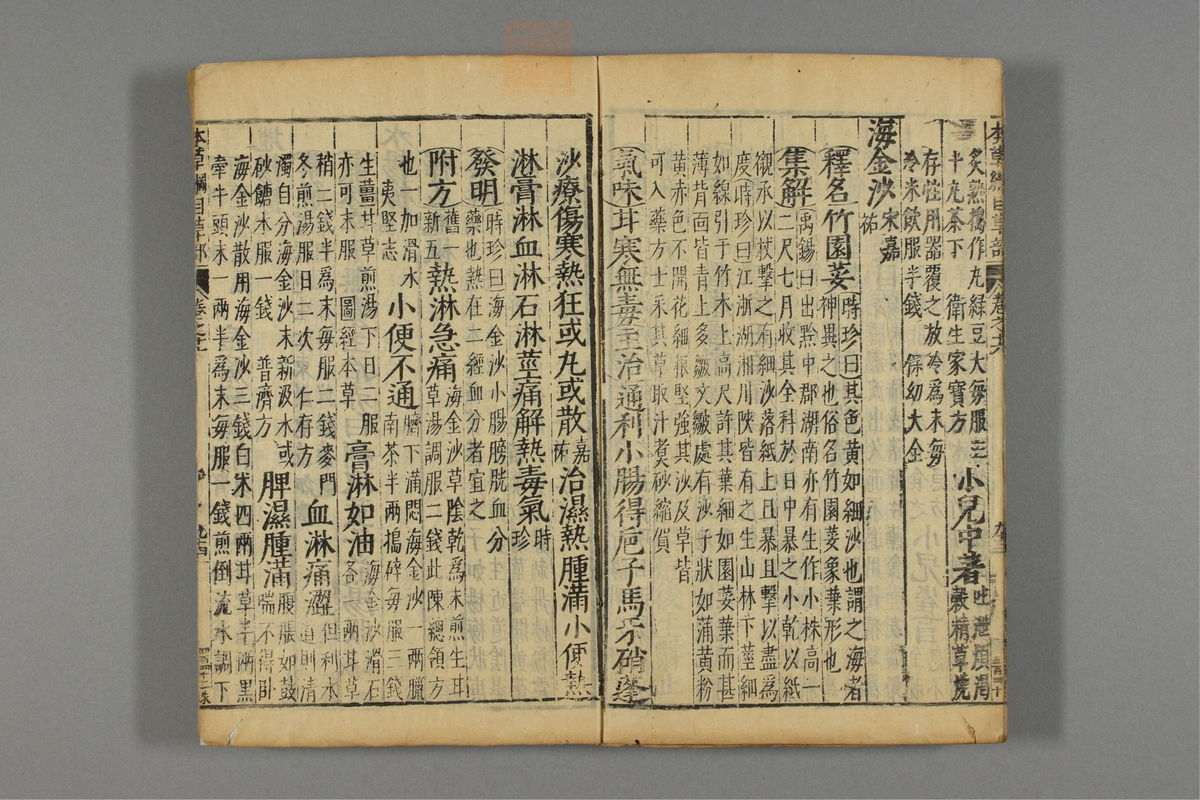 本草綱目草部
卷之十六
炙熟搗作丸綠豆大每服三
十丸茶下 衛生家寶方
小兒中暑吐泄煩渴
穀精草燒
存性用器覆之放冷爲末每
冷米飲服半錢 保幼大全
海金沙宋嘉
祐
釋名竹園荽時珍曰其色黃如細沙也謂之海者
神異之也俗名竹園荽象葉形也
集解禹錫曰出黔中郡湖南亦有生作小株高一
二尺七月收其全科於日中暴之小乾以紙
襯承以杖擊之有細沙落紙上且暴且擊以盡爲
度時珍曰江浙湖湘川陝皆有之生山林下莖細
如線引于竹木上高尺許其葉細如園荽葉而甚
薄背面皆青上多皺文皺處有沙子狀如蒲黃粉
黃赤色不開花細根堅強其沙及草皆
可入藥方士采其草取汁煑砂縮賀
氣味甘寒無毒主治通利小腸得巵子馬牙硝蓬
沙療傷寒熱狂或丸或散嘉
祐治濕熱腫滿小便熱
淋膏淋血淋石淋莖痛解熱毒氣時
珍
發明時珍曰海金沙小腸膀胱血分
藥也熱在二經血分者宜之
附方舊一
新五熱淋急痛海金沙草陰乾爲末煎生甘
草湯調服二錢此陳總領方
也一加滑水
夷堅志
小便不通臍下滿悶海金沙一兩臘
南茶半兩搗碎每服三錢
生薑甘草煎湯下日二服
亦可末服 圖經本草
膏淋如油海金沙滑石
各一兩甘草
稍二錢半爲末每服二錢麥門
冬煎湯服日二次 仁存方
血淋痛澀但利水
道則清
濁自分海金沙末新汲水或
砂餹水服一錢 普濟方
脾濕腫滿腹脹如鼓
喘不得臥
海金沙散用海金沙三錢白朮四兩甘草半兩黑
牽牛頭末一兩半爲末每服一錢煎倒流水調下
本草綱目草部
卷之十六